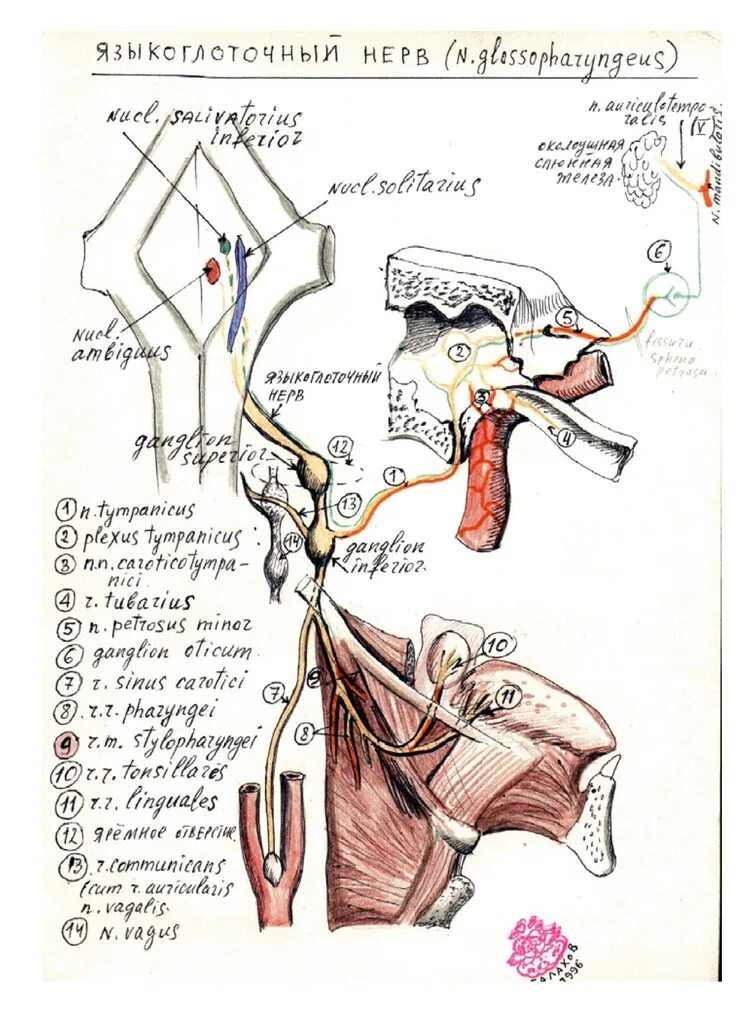 ЯЗЫКОГЛОТОЧНЫЙ НЕРВ (N. glossopharyngeus)
Nucl. SALIVatorius
inferior
n. auriculotempo-
ralis (V)
околоушная
слюнная
железа
N. mandibularis
Nucl. solitarius
6
5
fissura
spheno
petrosa
2
Nucl.
ambiguus
3
4
ЯЗЫКОГЛОТОЧНЫЙ
НЕРВ
ganglion
superior
12
1
13
14
ganglion
inferior
1 n. tympanicus
2 plexus tympanicus
3 n.n. caroticotympa-
nici
4 r. tubarius
5 n. petrosus minor
6 ganglion oticum
7 r. sinus carotici
8 r.r. pharyngei
9 r.m. stylopharyngei
10 r.r. tonsillares
11 r.r. linguales
12 ярёмное отверстие
13 r. communicans
(cum r. auricularis
n. vagalis
14 N. vagus
9
10
7
11
8
1996